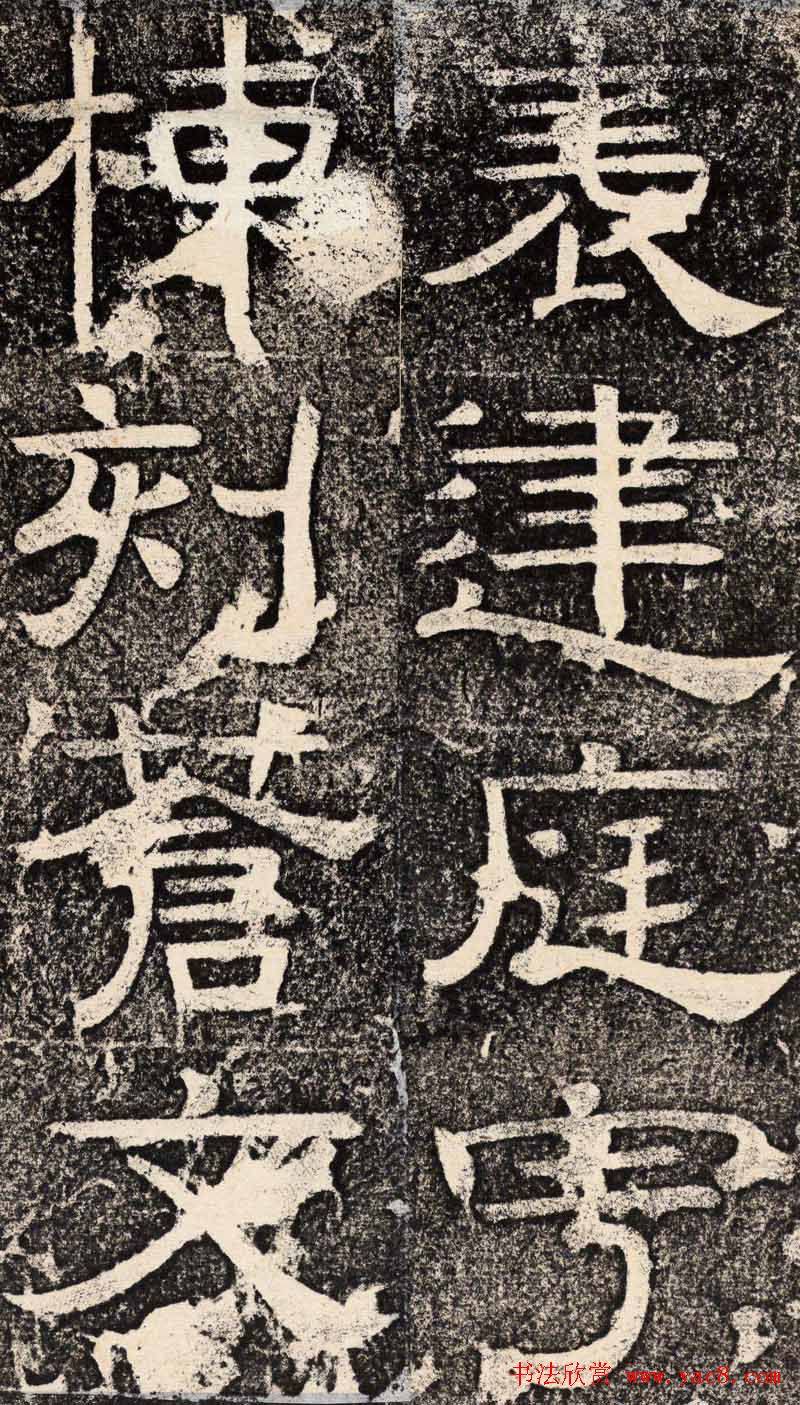 表建庭宇
棟刻蒼文
书法欣赏 www.yac8.com